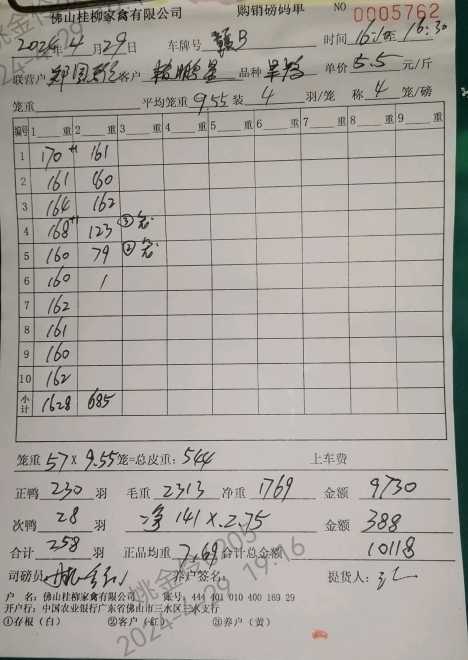 佛山桂柳家禽有限公司 购销磅码单 NO 0005762
2024年4月29日 车牌号 赣B 时间 16:10至16:30
联营户 客户 品种 单价 5.5 元/斤
笼重 平均笼重 9.55 装 4 羽/笼 称 4 笼/磅
编号 1 重 2 重 3 重 4 重 5 重 6 重 7 重 8 重 9 重
1 170 +1 161
2 161 60
3 164 162
4 168 +1 123 ③笼
5 160 79 ②笼
6 160 1
7 162
8 161
9 160
10 162
小计 1628 685
笼重 57 X 9.55 笼=总皮重: 544 上车费
正鸭 230 羽 毛重 2313 净重 1769 金额 9730
次鸭 28 羽 净 141 X 2.75 金额 388
合计 258 羽 正品均重 7.69 合计总金额 10118
司磅员 养户签名: 提货人:
户 名: 佛山桂柳家禽有限公司 账号: 444 401 010 400 169 29
开户行: 中国农业银行广东省佛山市三水区三水支行
①存根(白) ②客户(红) ③养户(黄)
2024-4-29 19:16